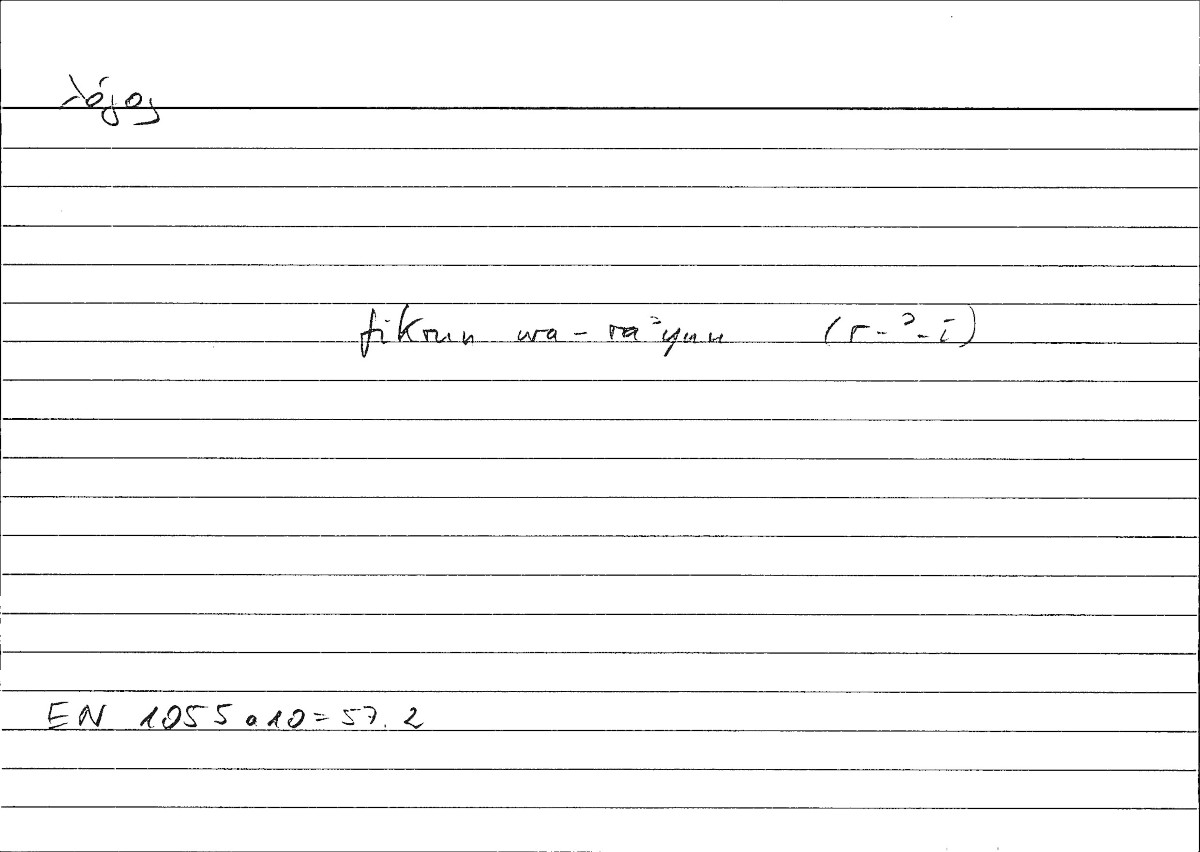 λόγος
fikrun wa-raʾyun (r-ʾ-ī)
EN 1055a10=57.2